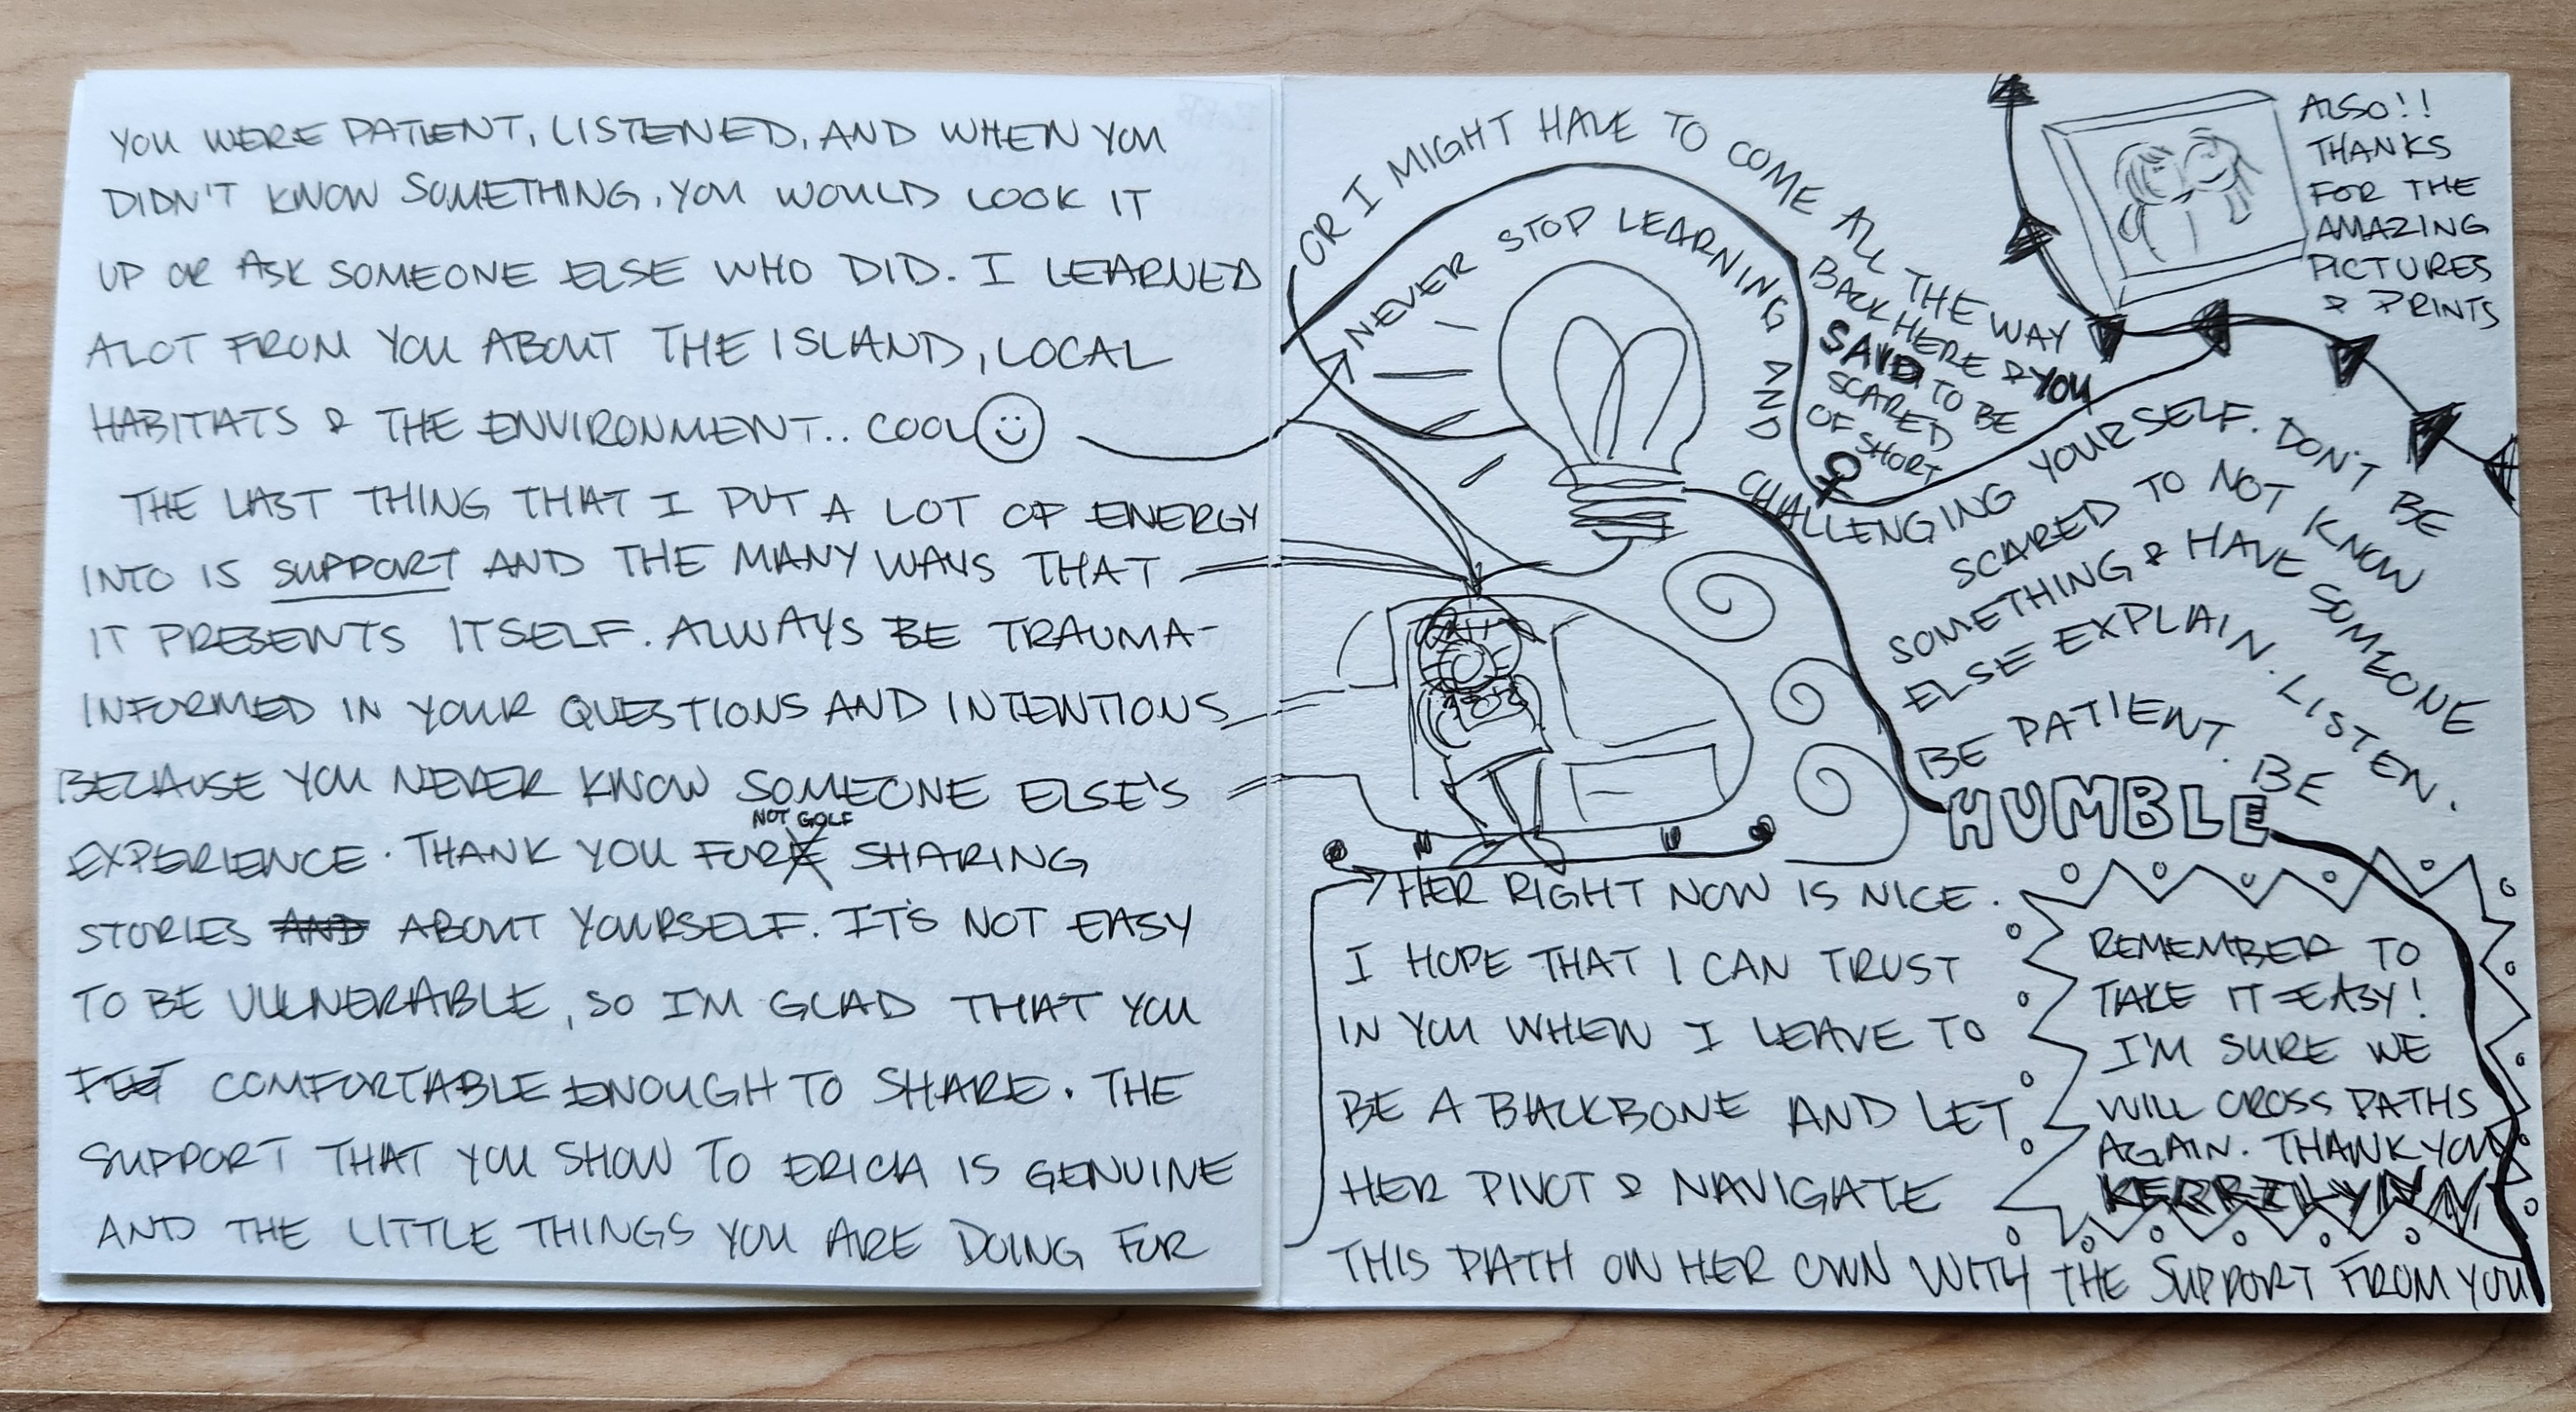 YOU WERE PATIENT, LISTENED, AND WHEN YOU
DIDN'T KNOW SOMETHING, YOU WOULD LOOK IT
UP OR ASK SOMEONE ELSE WHO DID. I LEARNED
ALOT FROM YOU ABOUT THE ISLAND, LOCAL
HABITATS & THE ENVIRONMENT.. COOL
THE LAST THING THAT I PUT A LOT OF ENERGY
INTO IS SUPPORT AND THE MANY WAYS THAT
IT PRESENTS ITSELF. ALWAYS BE TRAUMA-
INFORMED IN YOUR QUESTIONS AND INTENTIONS
BECAUSE YOU NEVER KNOW SOMEONE ELSE'S
NOT GOLF
EXPERIENCE. THANK YOU FORE SHARING
STORIES AND ABOUT YOURSELF. IT'S NOT EASY
TO BE VULNERABLE, SO I'M GLAD THAT YOU
FELT COMFORTABLE ENOUGH TO SHARE. THE
SUPPORT THAT YOU SHOW TO ERICA IS GENUINE
AND THE LITTLE THINGS YOU ARE DOING FOR
HER RIGHT NOW IS NICE.
I HOPE THAT I CAN TRUST
IN YOU WHEN I LEAVE TO
BE A BACKBONE AND LET
HER PIVOT & NAVIGATE
THIS PATH ON HER OWN WITH THE SUPPORT FROM YOU
NEVER STOP LEARNING AND
CHALLENGING YOURSELF. DON'T BE
SCARED TO NOT KNOW
SOMETHING & HAVE SOMEONE
ELSE EXPLAIN. LISTEN.
BE PATIENT. BE
HUMBLE
OR I MIGHT HAVE TO COME ALL THE WAY
BACK HERE & YOU
SAID TO BE
SCARED
OF SHORT
ALSO!!
THANKS
FOR THE
AMAZING
PICTURES
& PRINTS
REMEMBER TO
TAKE IT EASY!
I'M SURE WE
WILL CROSS PATHS
AGAIN. THANK YOU
KERRILYNN